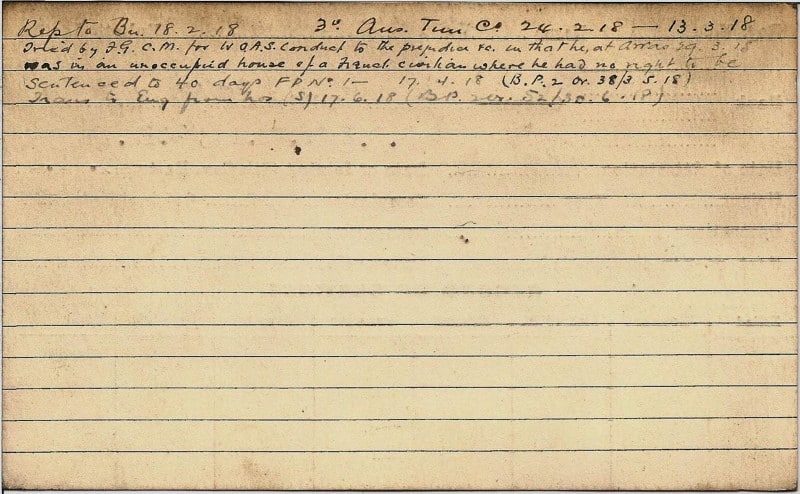 Rep to Bn. 18.2.18 3rd Aus. Tun Co 24.2.18 — 13.3.18
Tried by F.G.C.M. for W.O.A.S. Conduct to the prejudice &c. in that he, at Arras 29.3.18
was in an unoccupied house of a French civilian where he had no right to be
Sentenced to 40 days FP No. 1 — 17.4.18 (B.P.2 Or. 38/3.5.18)
Trans to Eng from hos (S) 17.6.18 (B.P. 2 Or. 52/30.6.18)